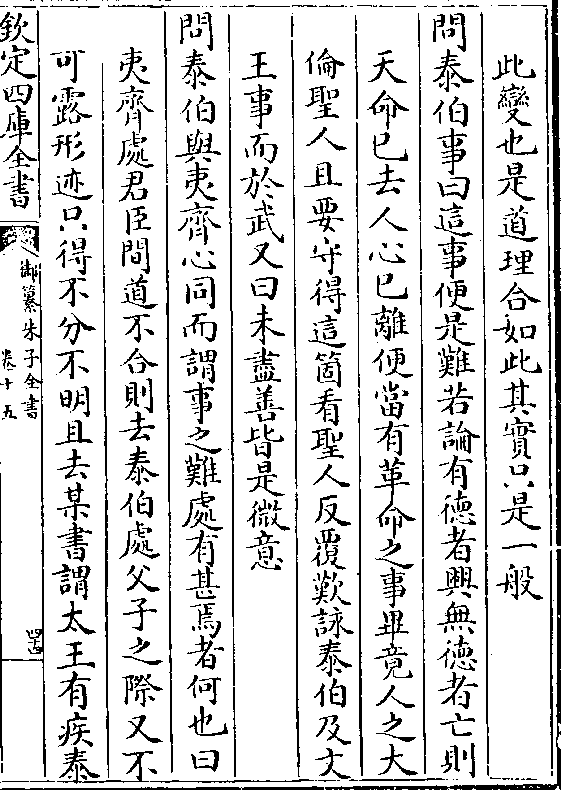 此變也是道理合如此其實只是一般
問泰伯事曰這事便是難若論有德者興無德者亡則
天命已去人心已離便當有革命之事畢竟人之大
倫聖人且要守得這箇看聖人反覆歎詠泰伯及文
王事而於武又曰未盡善皆是微意
問泰伯與夷齊心同而謂事之難處有甚焉者何也曰
夷齊處君臣間道不合則去泰伯處父子之際又不
可露形迹只得不分不明且去某書謂太王有疾泰
欽定四庫全書
御纂朱子全書
卷十五